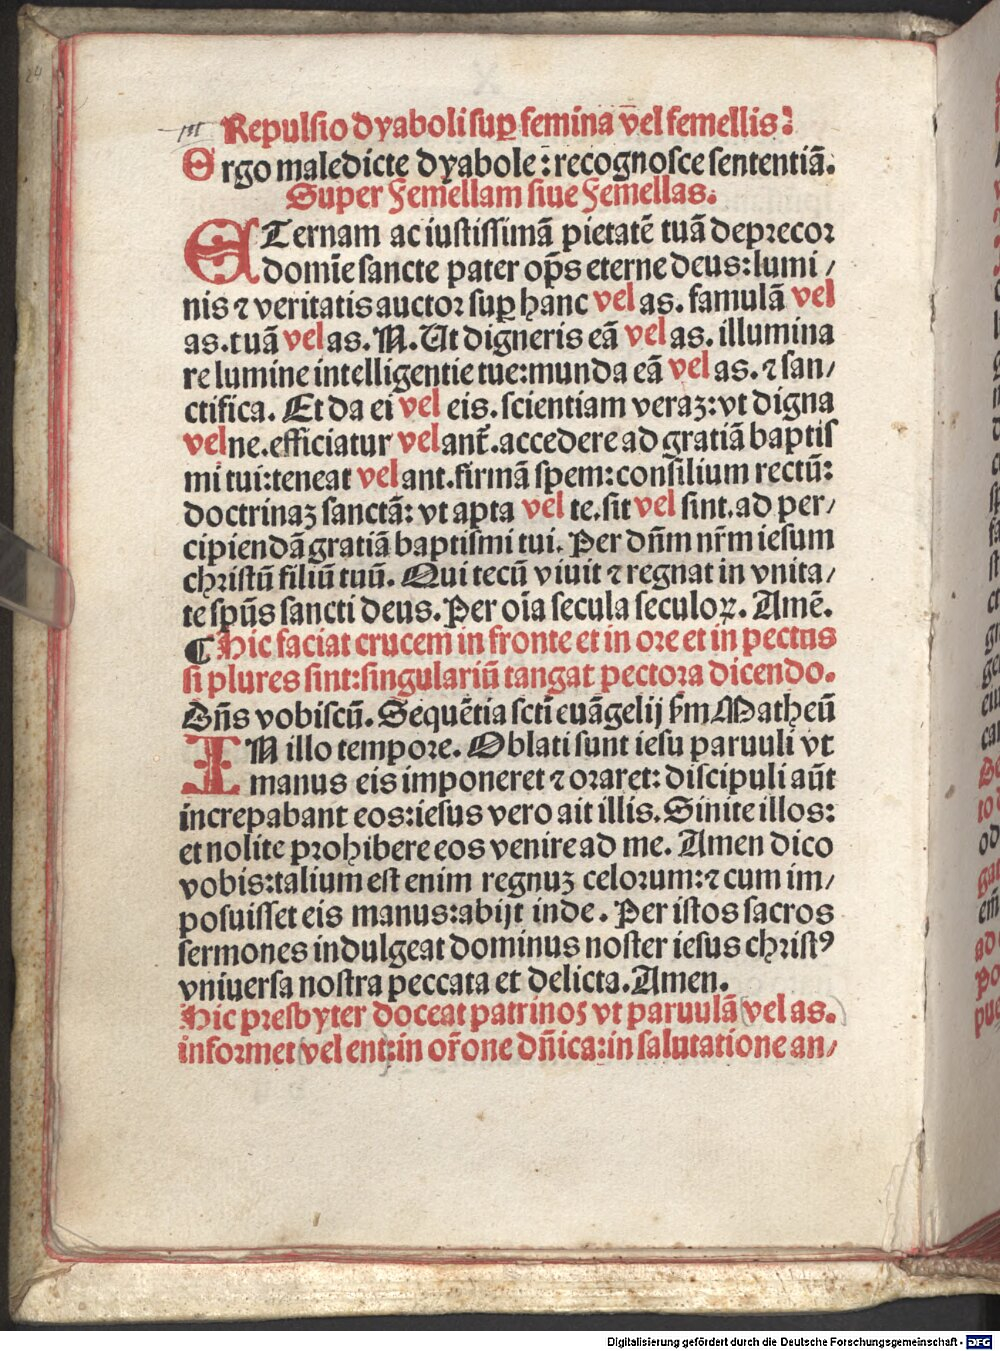 24
m Repulsio dyaboli suꝑ feminā vel femellis:
Ergo maledicte dyabole: recognosce sententiā.
Super Femellam siue Femellas.
ETernam ac iustissimā pietatē tuā deprecor
domīe sancte pater op̄s eterne deus: lumi/
nis ⁊ veritatis auctor suꝑ hanc vel as. famulā vel
as. tuā vel as. N. Ut digneris eā vel as. illumina
re lumine intelligentie tue: munda eā vel as. ⁊ san/
ctifica. Et da ei vel eis. scientiam veraꝫ: vt digna
vel ne. efficiatur vel ant̄. accedere ad gratiā baptis
mi tui: teneat vel ant. firmā spem: consilium rectū:
doctrinaꝫ sanctā: vt apta vel te. sit vel sint. ad per/
cipiendā gratiā baptismi tui. Per dn̄m nr̄m iesum
christū filiū tuū. Qui tecū viuit ⁊ regnat in vnita/
te spūs sancti deus. Per oīa secula seculoꝝ. Amē.
¶ Hic faciat crucem in fronte et in ore et in pectus
si plures sint: singulariū tangat pectora dicendo.
Dn̄s vobiscū. Sequētia scti euāgelij s̄m Matheū
IN illo tempore. Oblati sunt iesu paruuli vt
manus eis imponeret ⁊ oraret: discipuli aūt
increpabant eos: iesus vero ait illis. Sinite illos:
et nolite prohibere eos venire ad me. Amen dico
vobis: talium est enim regnuꝫ celorum: ⁊ cum im/
posuisset eis manus: abijt inde. Per istos sacros
sermones indulgeat dominus noster iesus christꝰ
vniuersa nostra peccata et delicta. Amen.
Hic presbyter doceat patrinos vt paruulā vel as.
informet vel ent: in or̄one dn̄ica: in salutatione an/
Digitalisierung gefördert durch die Deutsche Forschungsgemeinschaft - DFG